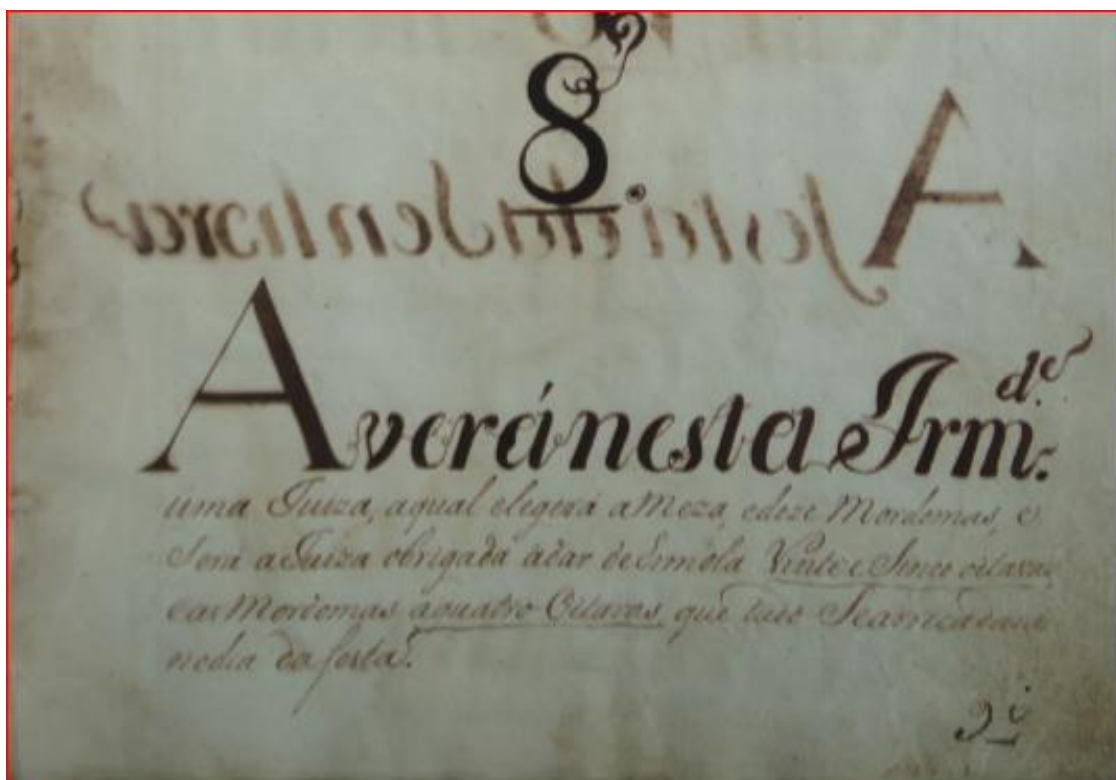 8.
A festa da Senhora
Averá nesta Irm.de
uma Juiza, aqual elegerá a Meza, edeze Mordomas, e
Será aJuiza obrigada adar deEsmola Vinte e Sinco oitavas,
eas Mordomas aquatro Oitavas, que tudo Searrecadará
nodia da festa.